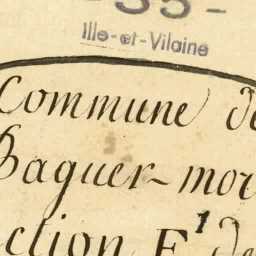 -35-
Ille-et-Vilaine
Commune de
Baguer-mor
ction E¹ de